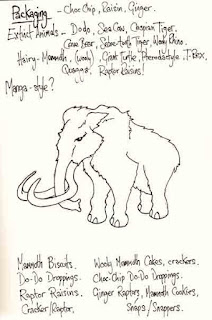 Packaging - Choc Chip, Raisin, Ginger.
Extinct Animals - Dodo, Sea Cow, Caspian Tiger,
Cave Bear, Sabre-tooth Tiger, Wooly Rhino.
Hairy - Mammoth, (wooly) Giant Turtle, T-Rex,
Quagga, Raptor Raisins!
Manga-style?
Mammoth Biscuits.
Do-Do Droppings.
Raptor Raisins
Cracker/Raptor,
Wooly Mammoth Cakes, crackers.
Choc-Chip Do-Do Droppings.
Ginger Raptors, Mammoth Cookies,
Snaps/Snappers.